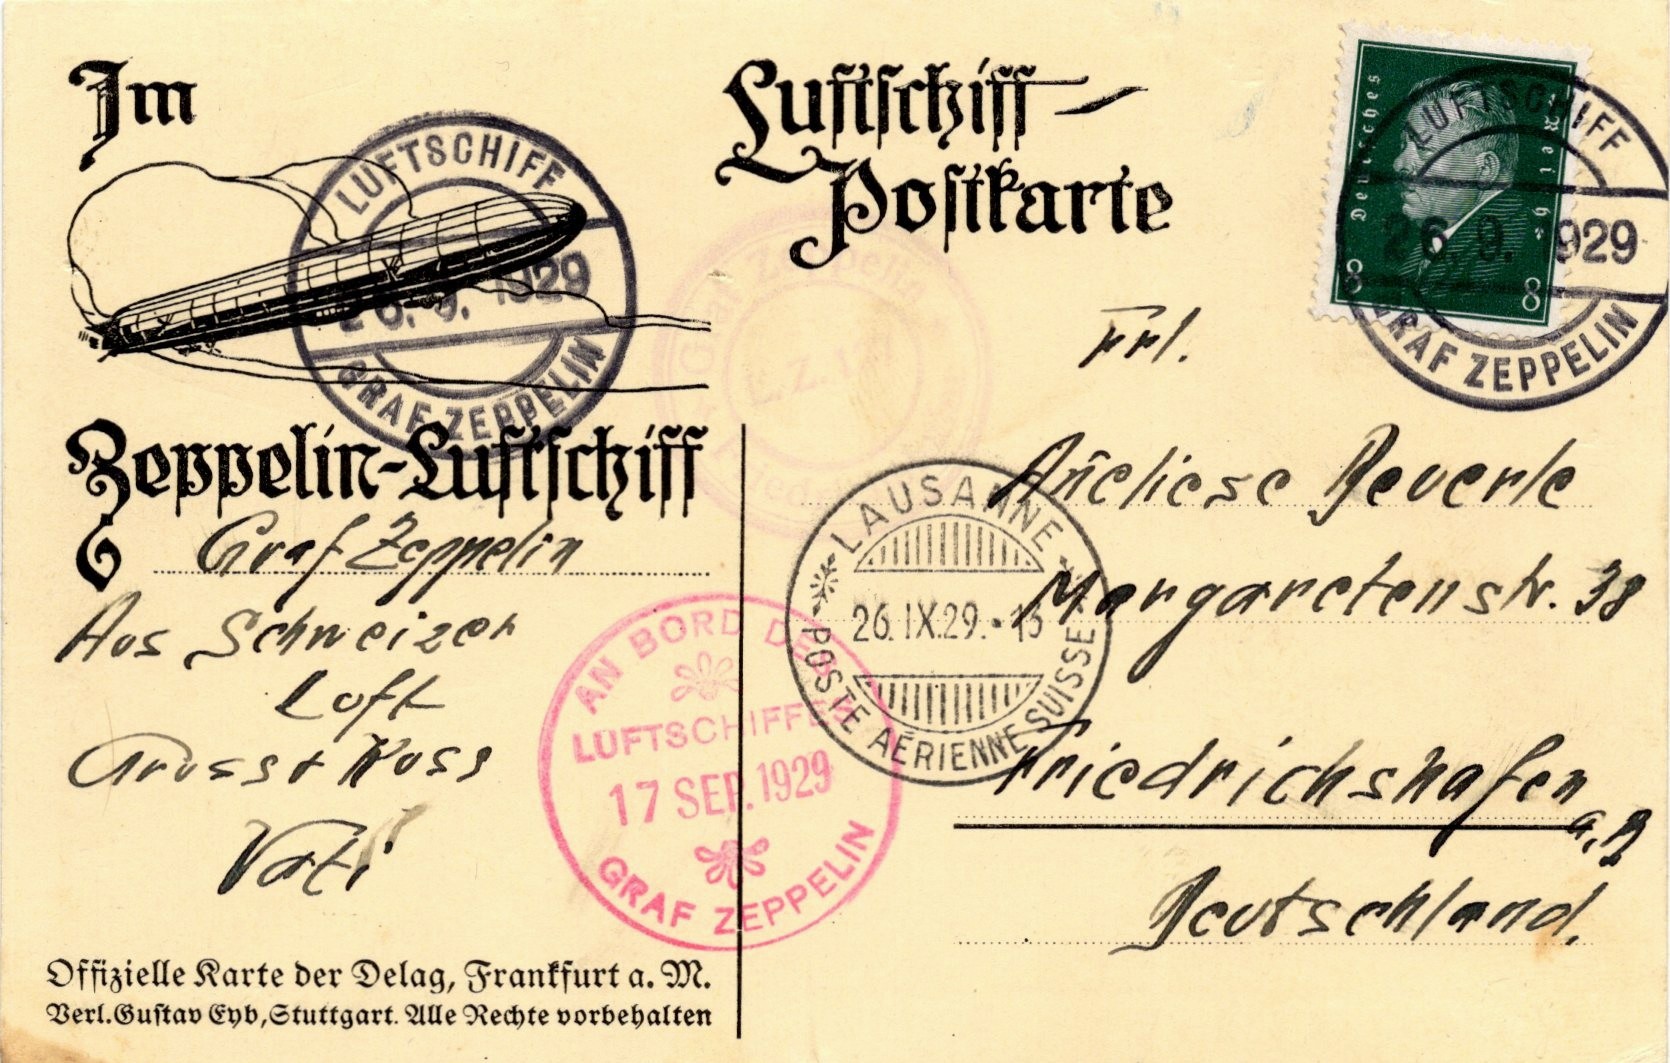 Im
Luftschiff-
Postkarte
Deutsches Reich
8 8
LUFTSCHIFF
26.9.1929
GRAF ZEPPELIN
LUFTSCHIFF
26.9.1929
GRAF ZEPPELIN
Graf Zeppelin
L.Z.127
Zeppelin-Luftschiff
Graf Zeppelin
Aus Schweizer
Luft
Gruss + Kuss
Vati
AN BORD DES
LUFTSCHIFFES
17 SEP. 1929
GRAF ZEPPELIN
LAUSANNE
26.IX.29.-13
POSTE AÉRIENNE SUISSE
Frl.
Anneliese Beuerle
Margaretenstr. 38
Friedrichshafen
a.B
Deutschland.
Offizielle Karte der Delag, Frankfurt a. M.
Verl. Gustav Eyb, Stuttgart. Alle Rechte vorbehalten